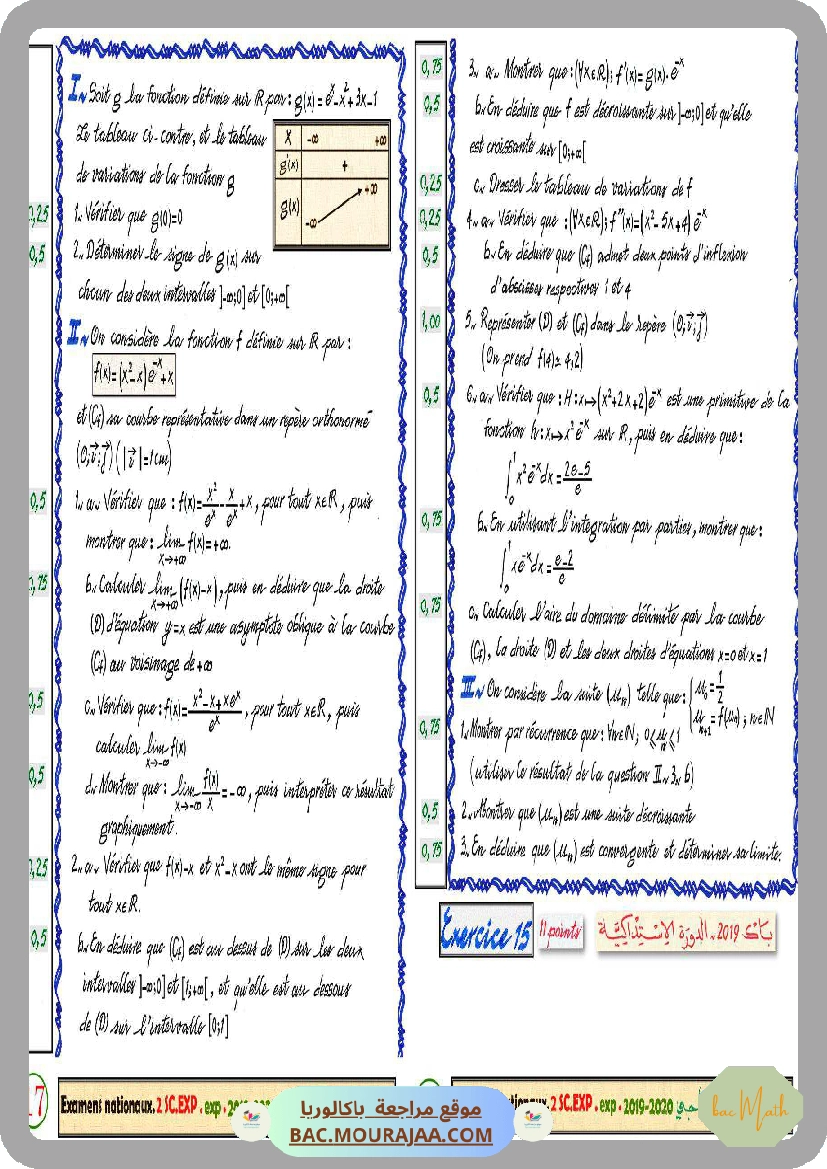 I~ Soit g la fonction définie sur ℝ par : g(x) = eˣ - x² + 3x - 1
Le tableau ci-contre, et le tableau
de variations de la fonction g
x -∞ +∞
g'(x) +
g(x) -∞ +∞
0,25
1~ Vérifier que g(0)=0
0,5
2~ Déterminer le signe de g(x) sur
chcun des deux intervalles ]-∞;0] et [0;+∞[
II~ On considère la fonction f définie sur ℝ par :
f(x) = (x² - x)e⁻ˣ + x
et (Cf) sa courbe représentative dans un repère orthonormé
(O; i⃗; j⃗) (|i⃗| = 1cm)
0,5
1~ a~ Vérifier que : f(x) = x²/eˣ - x/eˣ + x, pour tout x∈ℝ, puis
montrer que : lim x→+∞ f(x) = +∞.
0,75
b~ Calculer lim x→+∞ (f(x)-x), puis en déduire que la droite
(D) d'équation y=x est une asymptote oblique à la courbe
(Cf) au voisinage de +∞
0,5
c~ Vérifier que : f(x) = (x² - x + xeˣ)/eˣ, pour tout x∈ℝ, puis
calculer lim x→-∞ f(x)
0,5
d~ Montrer que : lim x→-∞ f(x)/x = -∞, puis interpréter ce résultat
graphiquement.
0,25
2~ a~ Vérifier que f(x)-x et x²-x ont le même signe pour
tout x∈ℝ.
0,5
b~ En déduire que (Cf) est au dessus de (D) sur les deux
intervalles ]-∞;0] et [1;+∞[, et qu'elle est au dessous
de (D) sur l'intervalle [0;1]
0,75
3~ a~ Montrer que : (∀x∈ℝ); f'(x) = g(x).e⁻ˣ
0,5
b~ En déduire que f est décroissante sur ]-∞;0] et qu'elle
est croissante sur [0;+∞[
0,25
c~ Dresser le tableau de variations de f
0,25
4~ a~ Vérifier que : (∀x∈ℝ); f''(x) = (x² - 5x + 4)e⁻ˣ
0,5
b~ En déduire que (Cf) admet deux points d'inflexion
d'abscisses respectives 1 et 4
1,00
5~ Représenter (D) et (Cf) dans le repère (O; i⃗; j⃗)
(On prend f(4) ≃ 4,2)
0,5
6~ a~ Vérifier que : H : x↦(x² + 2x + 2)e⁻ˣ est une primitive de la
fonction h : x↦x²e⁻ˣ sur ℝ, puis en déduire que :
∫₀¹ x²e⁻ˣdx = (2e-5)/e
0,75
b~ En utilisant l'intégration par parties, montrer que :
∫₀¹ xe⁻ˣdx = (e-2)/e
0,75
c~ Calculer l'aire du domaine délimité par la courbe
(Cf), la droite (D) et les deux droites d'équations x=0 et x=1
III~ On considère la suite (uₙ) telle que : { u₀ = 1/2
uₙ₊₁ = f(uₙ) ; n∈ℕ
0,75
1~ Montrer par récurrence que : ∀n∈ℕ; 0 ≤ uₙ ≤ 1
(utiliser le résultat de la question II~3~b)
0,5
2~ Montrer que (uₙ) est une suite décroissante
0,75
3~ En déduire que (uₙ) est convergente et déterminer sa limite.
Exercice 15
11 points
باك 2019 ـ الدورة الإستدراكية
17
Examens nationaux. 2 SC.EXP . exp .
nationaux. 2 SC.EXP . exp . 2019-2020
موقع مراجعة باكالوريا
BAC.MOURAJAA.COM
bac Math